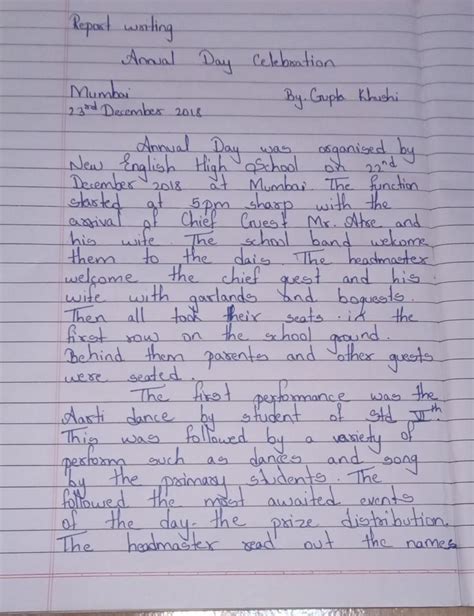 Report writing
Annual Day Celebration
Mumbai By. Gupta Khushi
23rd December 2018
Annual Day was organised by
New English High School on 22nd
December 2018 at Mumbai. The function
started at 5pm sharp with the
arrival of Chief Guest Mr. Atre and
his wife. The school band welcome
them to the dais. The headmaster
welcome the chief guest and his
wife with garlands and boquests.
Then all took their seats in the
first row on the school ground.
Behind them parents and other guests
were seated.
The first performance was the
Aarti dance by student of Std VIth.
This was followed by a variety of
perform such as dances and song
by the primary students. The
followed the most awaited events
of the day - the prize distribution.
The headmaster read out the names